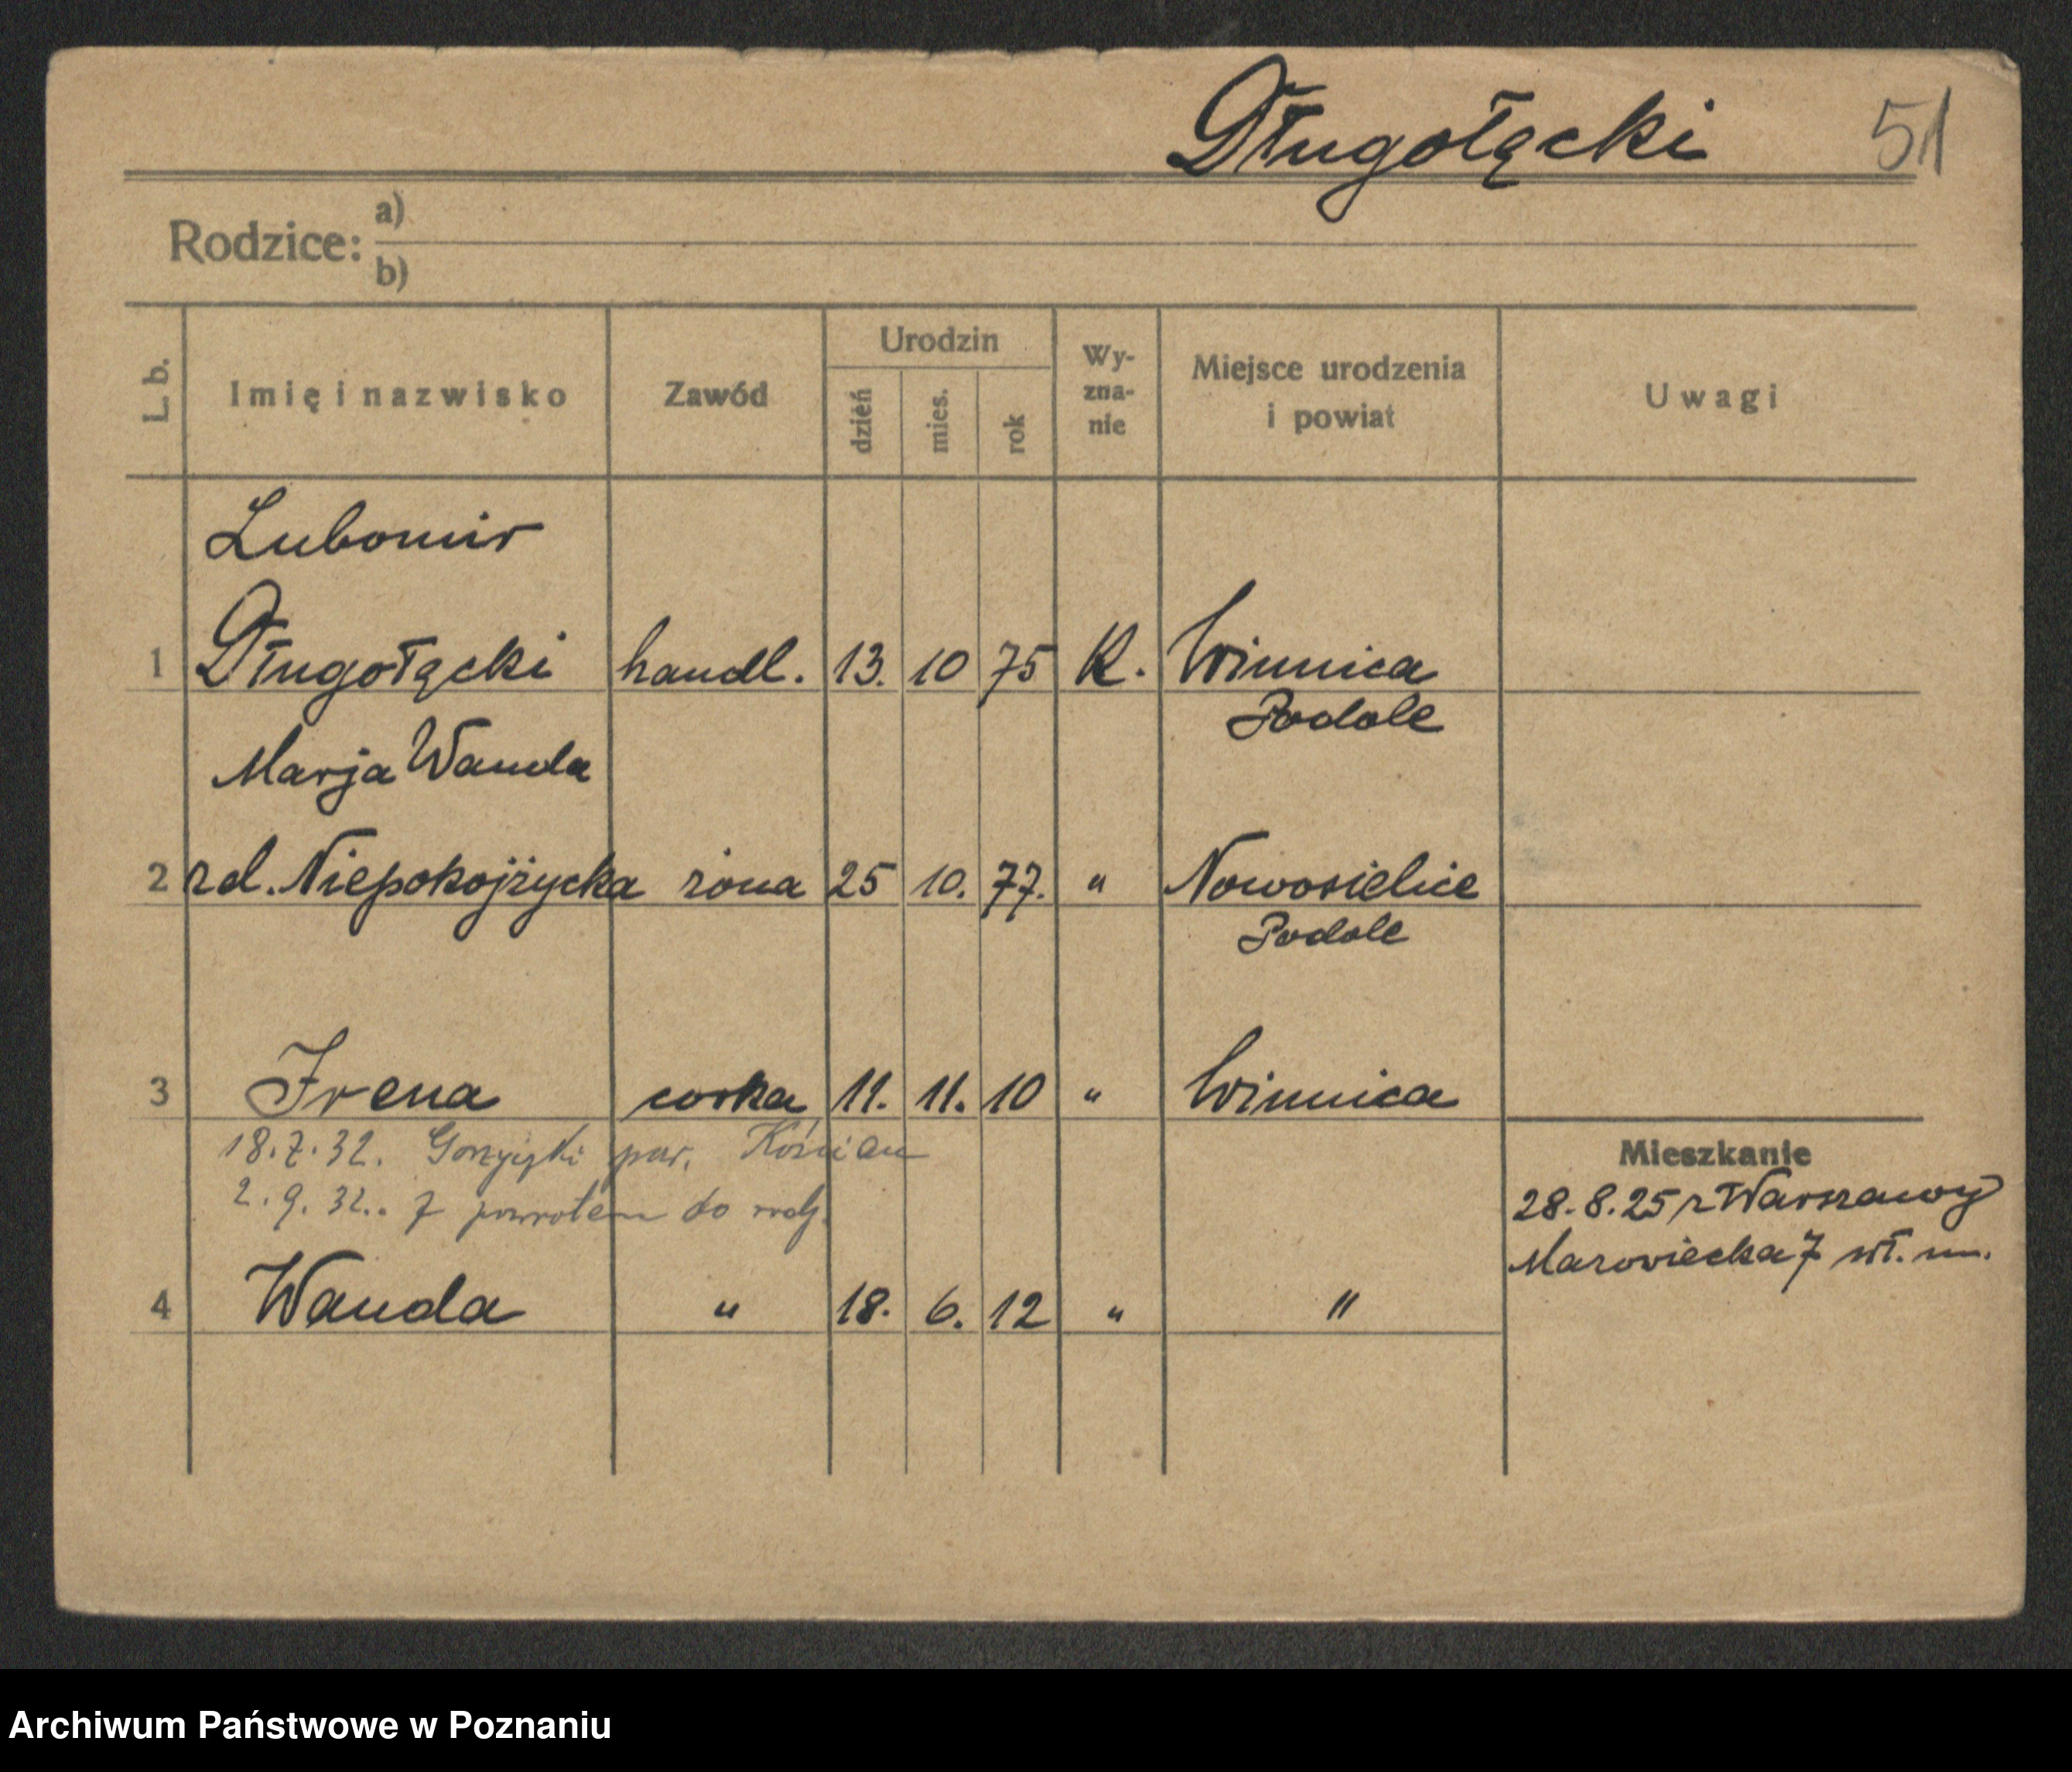 Długołącki 51
Rodzice: a)
b)
L. b. Imię i nazwisko Zawód Urodzin dzień mies. rok Wy-zna-nie Miejsce urodzenia i powiat Uwagi
Lubomir
1 Długołącki handl. 13. 10 75 K. Winnica
Podole
Marja Wanda
2 zd. Niepokojżycka żona 25 10. 77. " Nowosielice
Podole
3 Irena corka 11. 11. 10 " Winnica
18.7.32. pow. Kościan
2.9.32.. z powrotem do rodz.
Mieszkanie
28.8.25 z Warszawy
Mazowiecka 7 wł. m.
4 Wanda " 18. 6. 12 " "
Archiwum Państwowe w Poznaniu